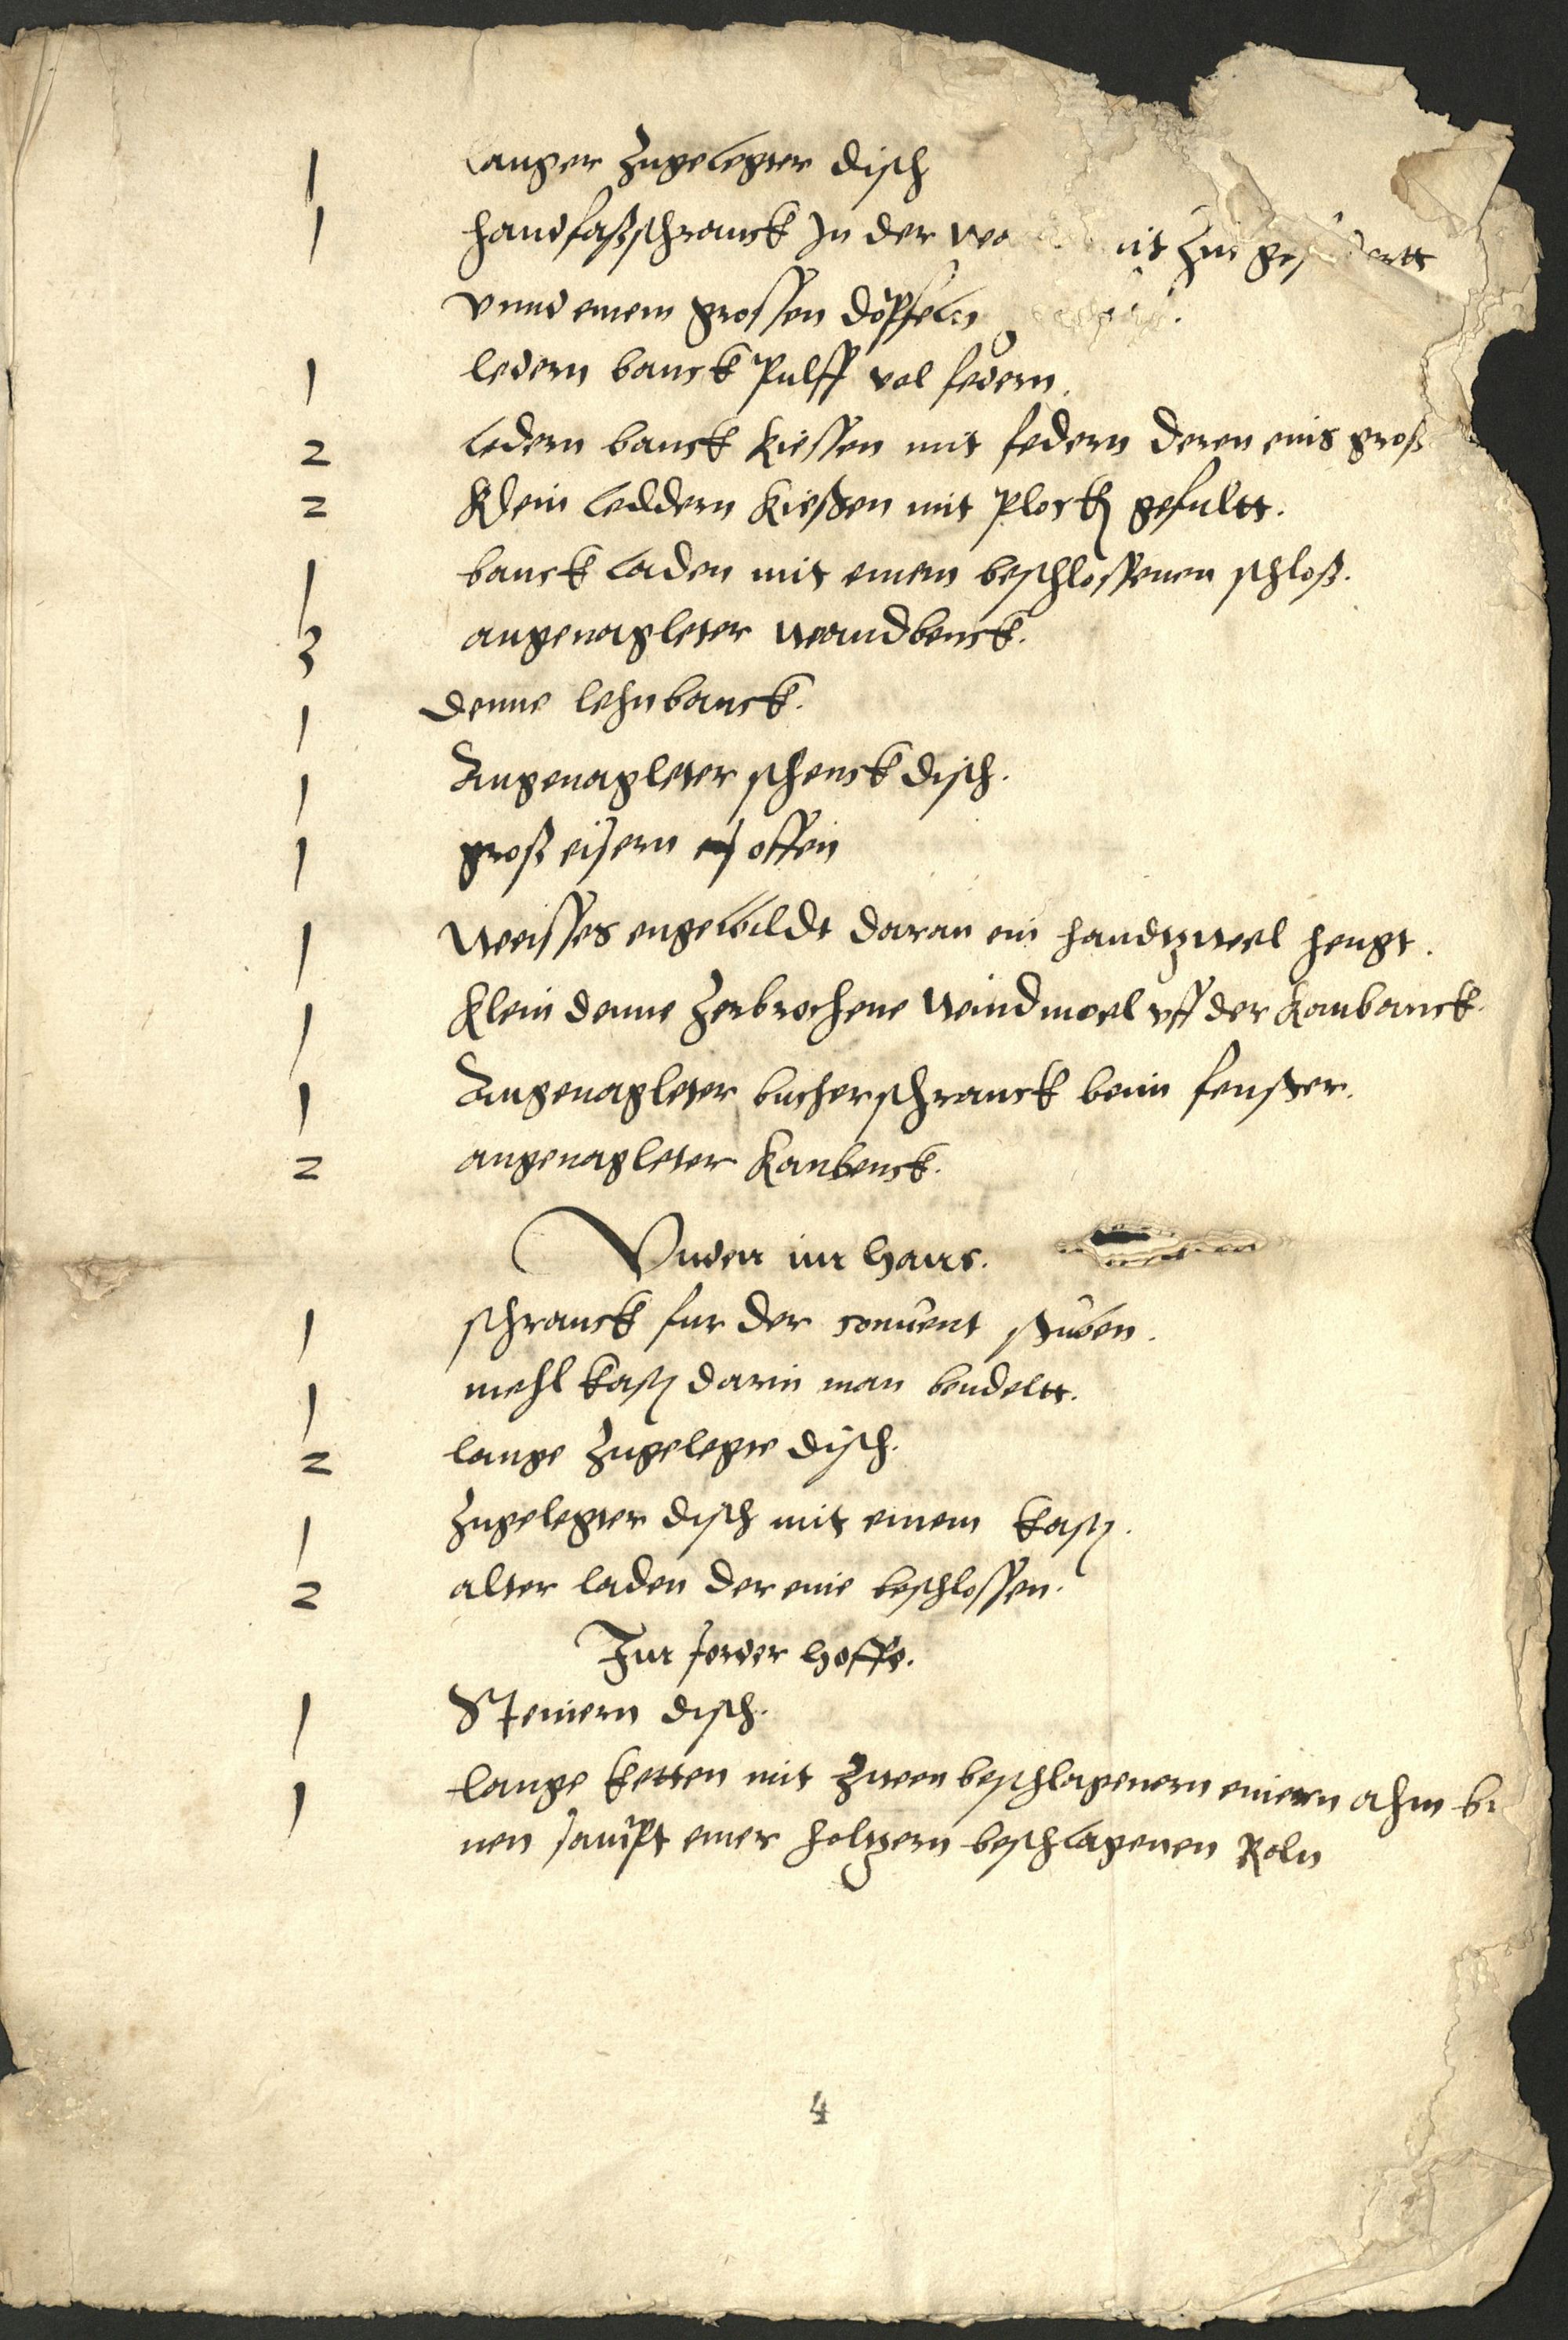 1 langer zugelegter disch
1 handfaßschranck Jn der mit Zin
vnnd einem grossen döpfeln
1 ledern banck Pulff vol federn.
2 ledern banck kiessen mit federn deren eins groß
2 Klein leddern kießen mit Plock gefultt.
1 banck laden mit einem beschlossenen schloß.
3 angenagleter wandbenck.
1 denne lehnbanck.
1 Angenagleter schenck disch.
1 groß eisern offen
1 Weisses daran ein handtzweel hengt.
1 Klein denne Zerbrochene Windmoel vff der Kanbanck.
1 Angenagleter bucherschranck beim fenster.
2 angenagleter Kanbenck.
Vnden im haus.
1 schranck fur der conuent stuben.
1 mehl kast darin man beudeltt.
2 lange Zugelegte disch.
1 Zugelegter disch mit einem kast.
2 alter laden der eine beschlossen.
Im hoffe.
1 Steinern disch.
1 lange ketten mit Zween beschlagenern ahm
nen sampt einer holtzern beschlagenen Roln
4